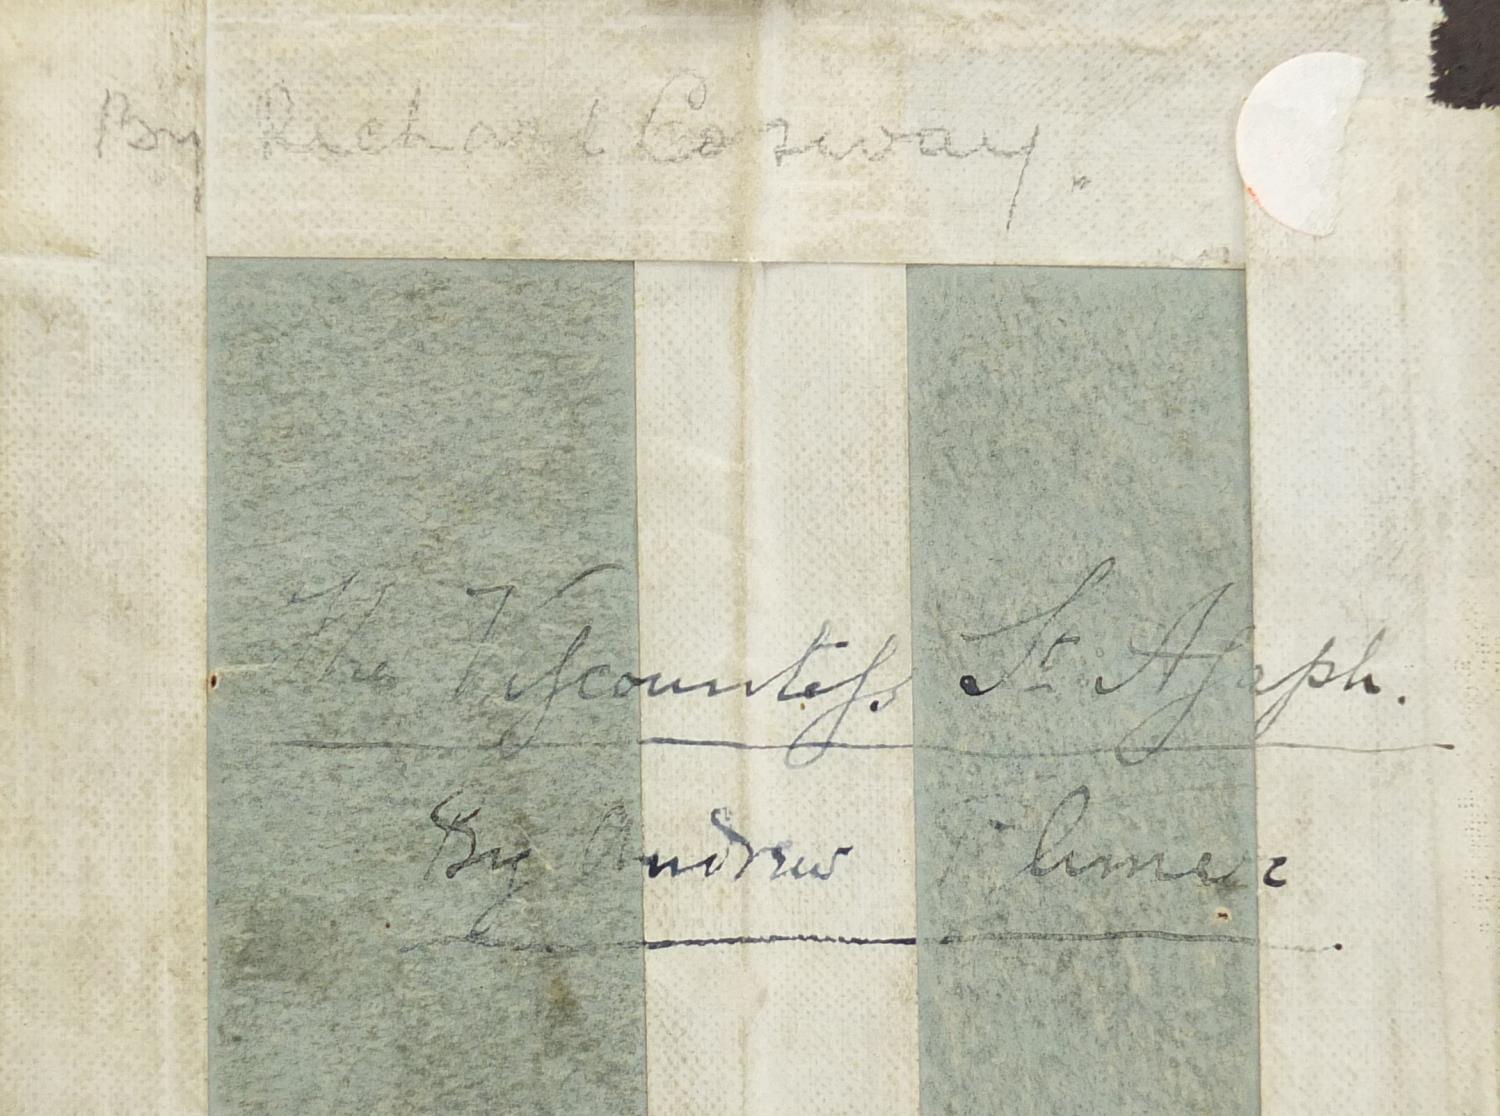 By Richard Cosway.
The Viscountess St. Asaph.
By Andrew Plimer